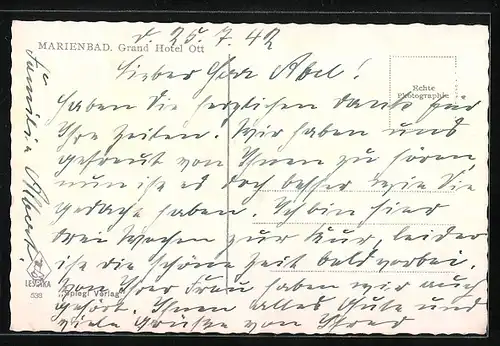 v. 25.7.42
MARIENBAD. Grand Hotel Ott
Lieber Herr Abel!
Echte
Photographie
haben Sie herzlichen Dank für
Ihre Zeilen. Wir haben uns
gefreut von Ihnen zu hören,
nun ist es doch besser wie Sie
gedacht haben. Ich bin hier
drei Wochen zur Kur, leider
ist die schöne Zeit bald vorbei.
Von Ihrer Frau haben wir auch
gehört. Ihnen alles Gute und
viele Grüße von Ihrer
Familie Albert.
LEDERKA
538
Spiegl Verlag